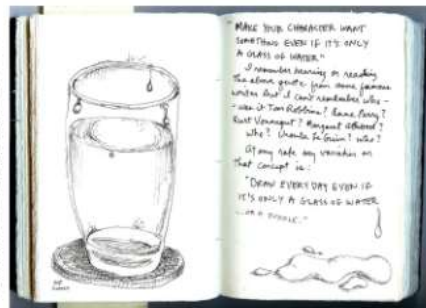 "MAKE YOUR CHARACTER WANT
SOMETHING EVEN IF IT'S ONLY
A GLASS OF WATER"
I remember hearing or reading
the above quote from some famous
writer but I can't remember who -
- was it Tom Robbins? Anne Perry?
Kurt Vonnegut? Margaret Atwood?
Who? Ursula Le Guin? Who?
At any rate my variation on
that concept is:
"DRAW EVERY DAY EVEN IF
IT'S ONLY A GLASS OF WATER
...OR A PUDDLE."